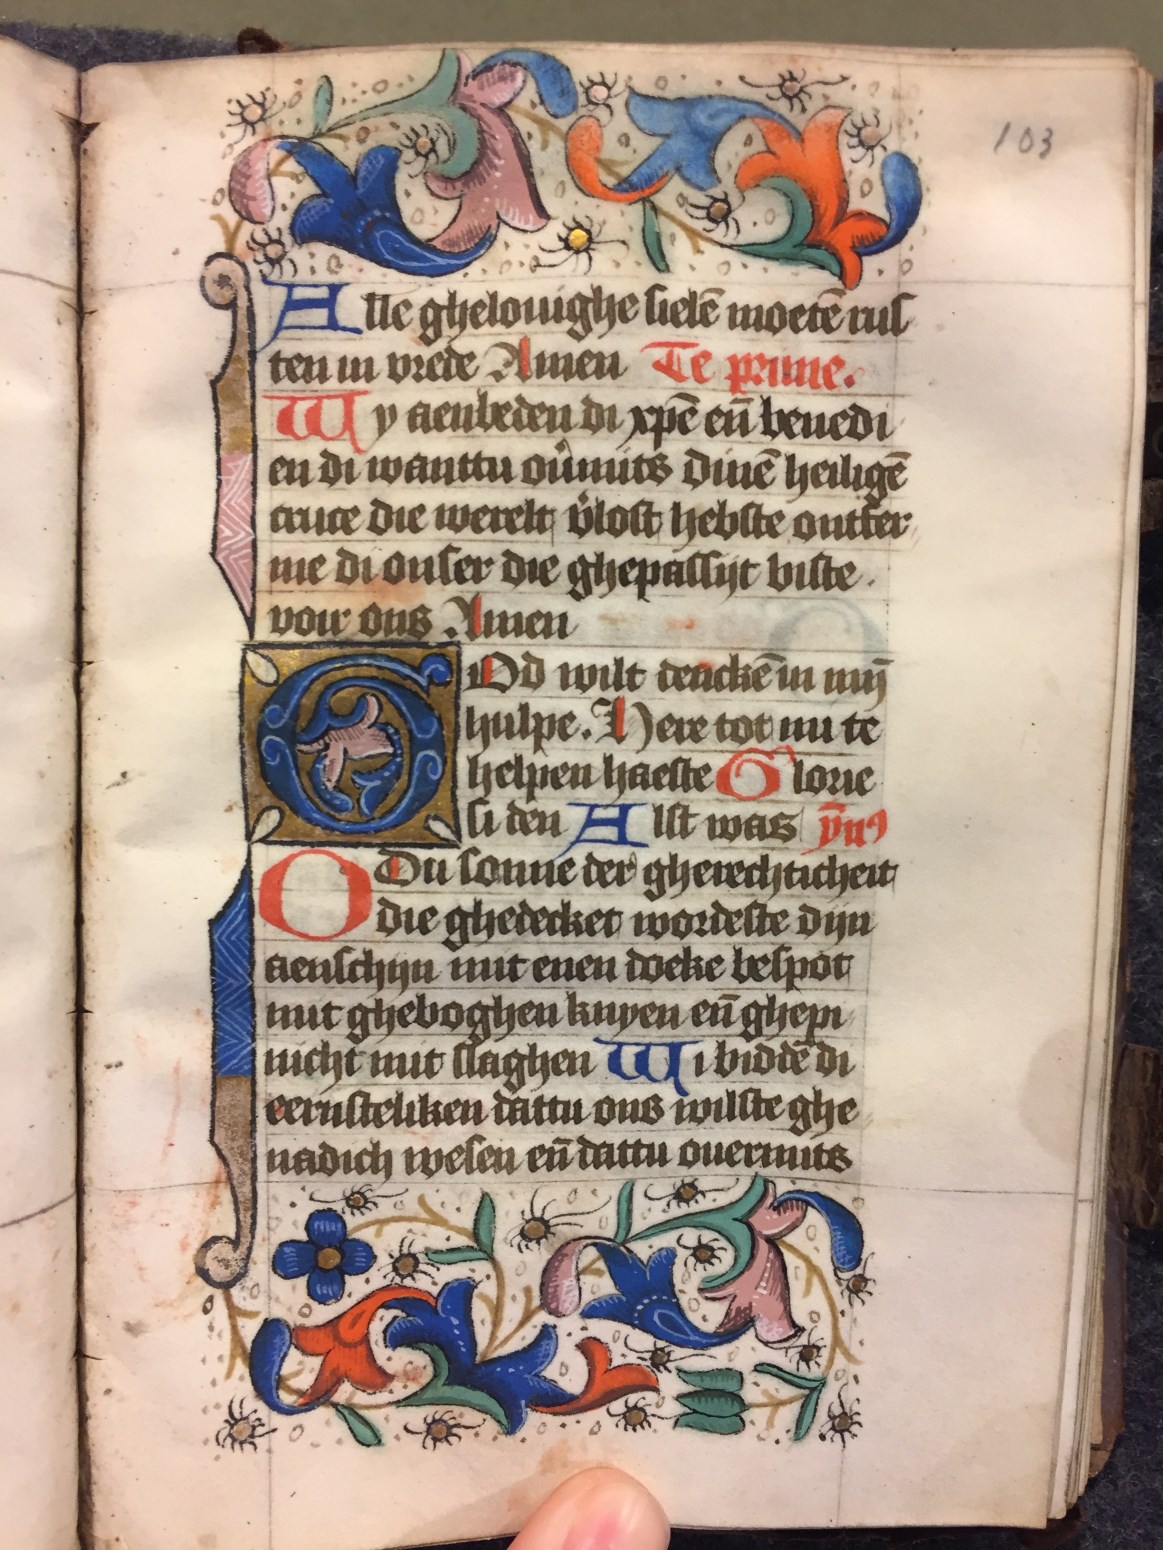 103
Alle ghelouighe sielē moetē rus
ten in vrede Amen Te prime.
Wy aenbeden di xpē en̄ benedi
en di wanttu ou̓mits dinē heiligē
cruce die werelt v̓lost hebste ontfer
me di onser die ghepassijt biste
voir ons Amen
GOd wilt dencke̅ in mij̅
hulpe. Here tot mi te
helpen haeste Glorie
si den Alst was ym̄ꝰ
O Du sonne der gherechticheit
die ghedecket wordeste dijn
aenschijn mit enen doeke bespot
mit gheboghen knyen en̄ ghepi
nicht mit slaghen Wi biddē di
eernsteliken dattu ons wilste ghe
nadich wesen en̄ dattu ouermits